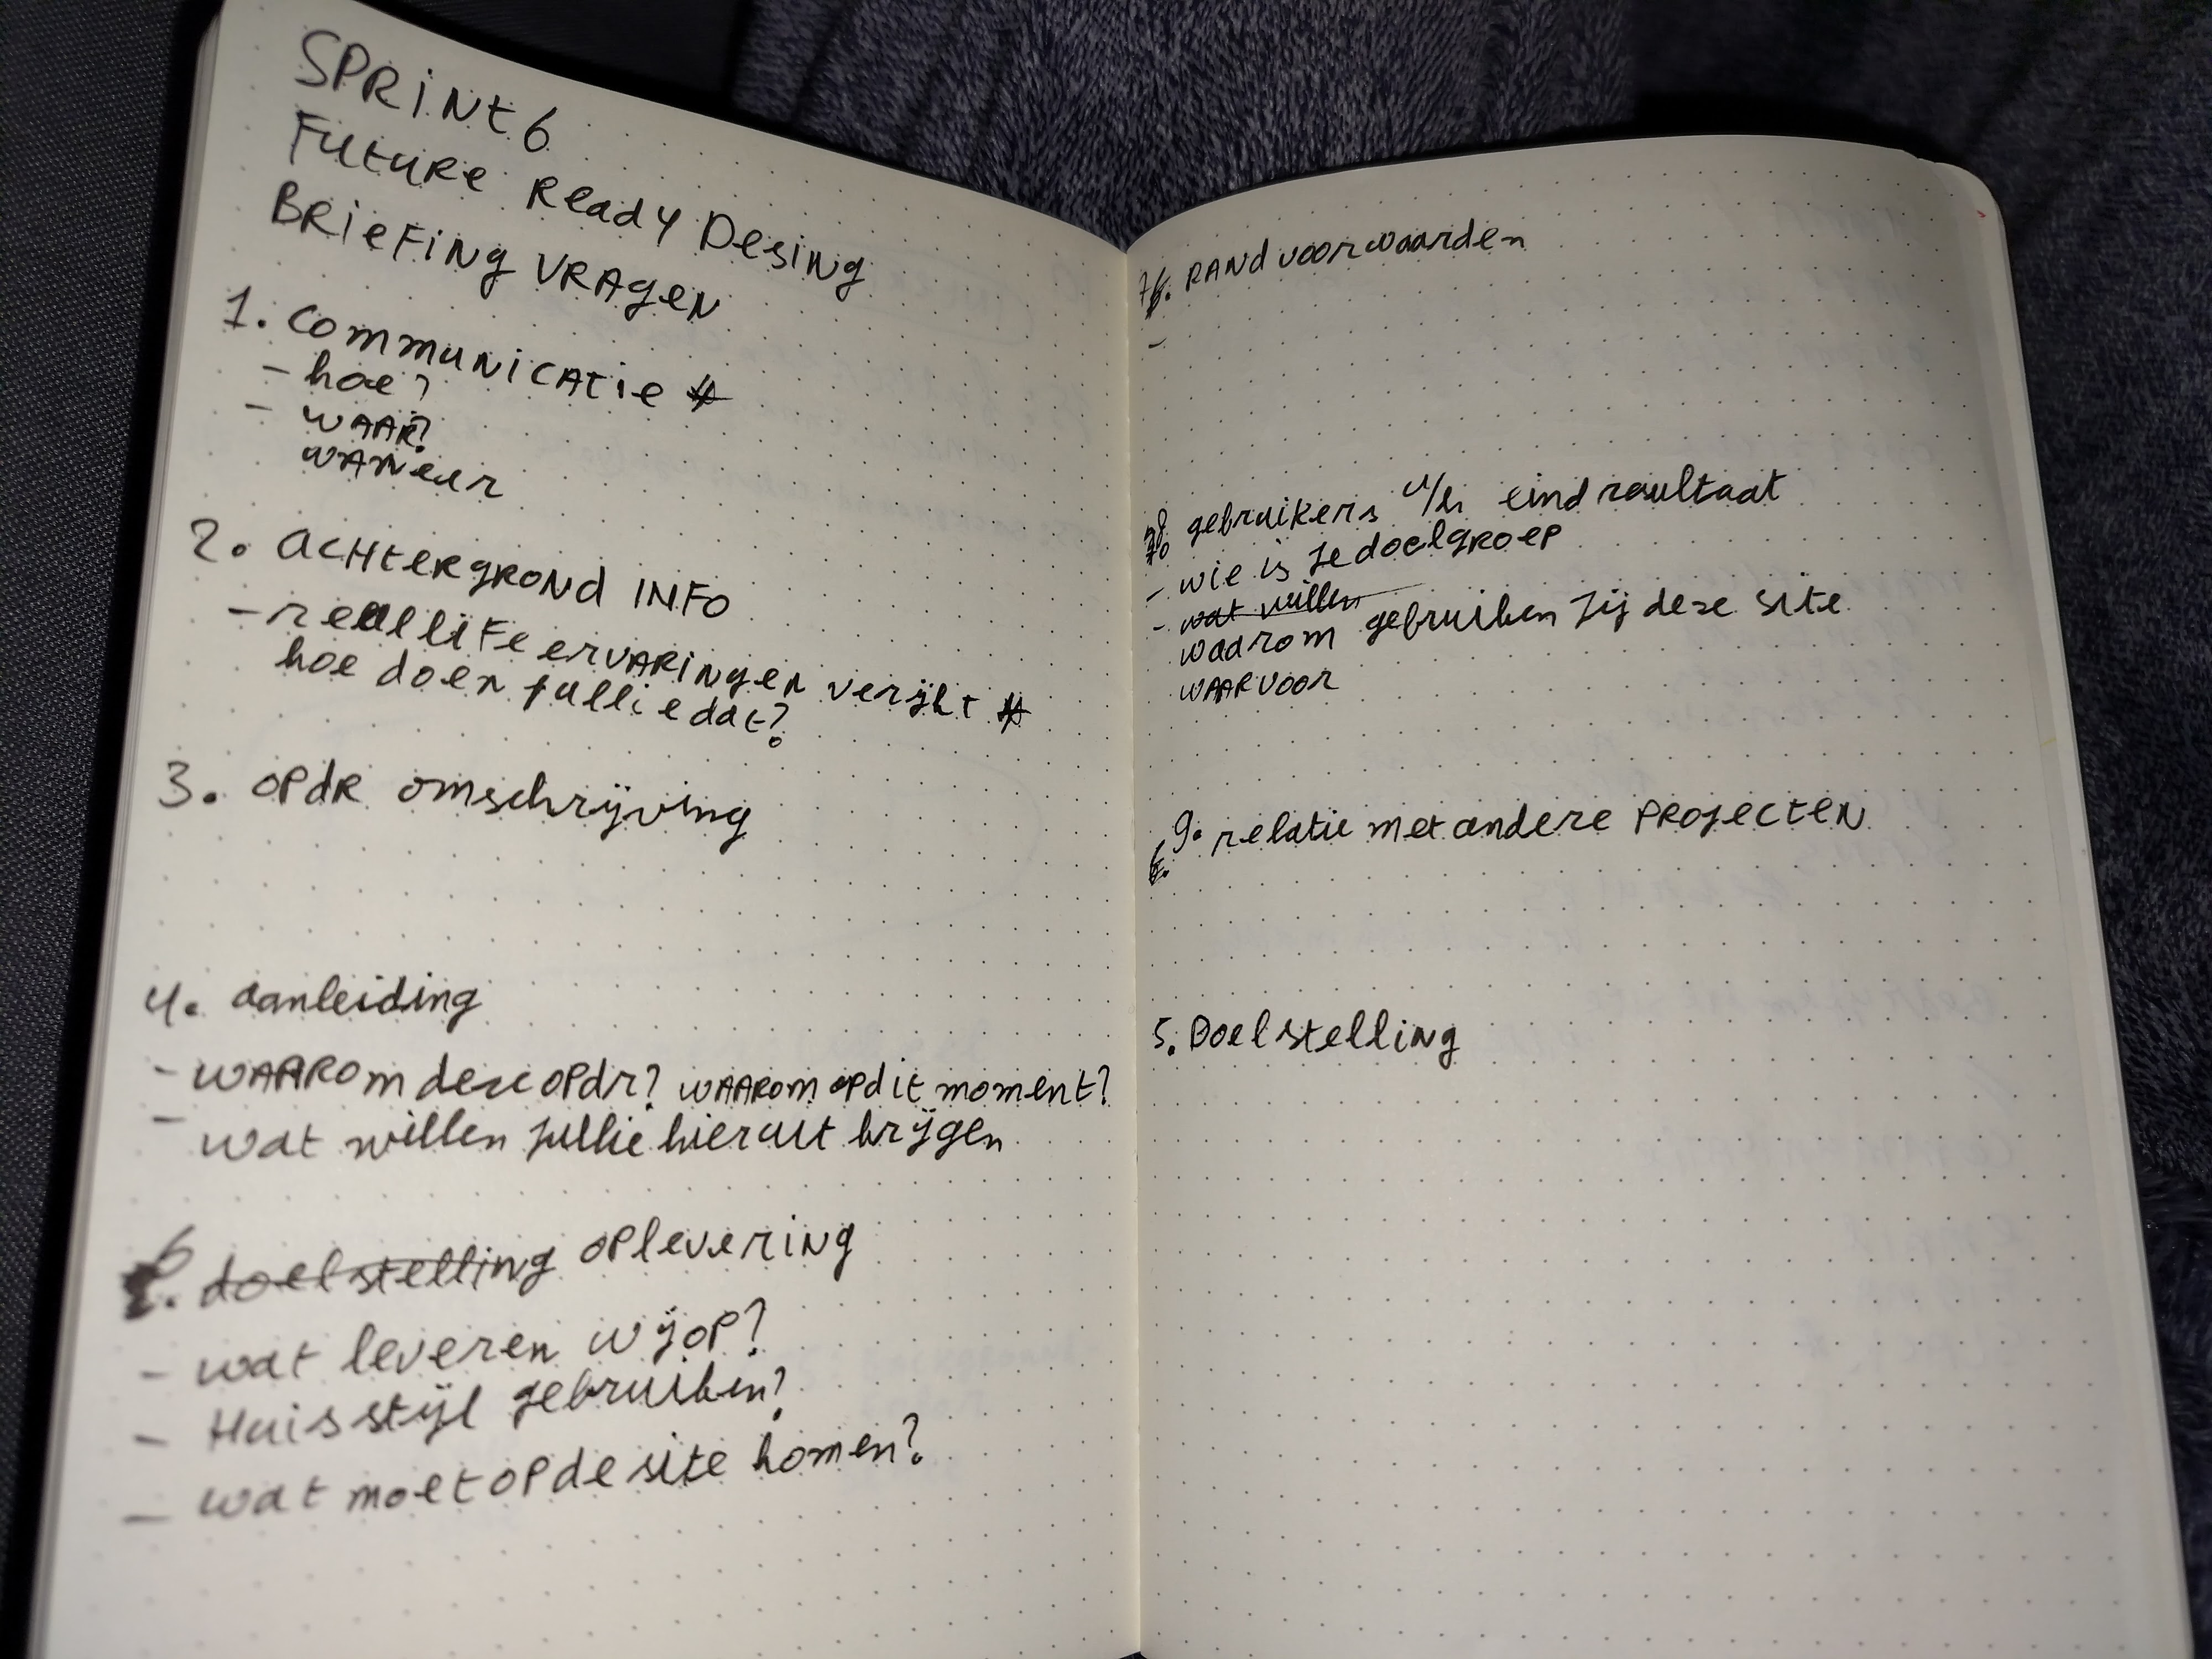 SPRiNt 6
Future Ready Desing
Briefing vragen
1. Communicatie #
- hoe?
- waar?
waneer
2. achtergrond INFO
- reallife ervaringen verijkt #
hoe doen jullie dat?
3. opdr omschrijving
4. aanleiding
- waarom deze opdr? waarom op dit moment?
- wat willen jullie hieruit krijgen
6. doelstelling oplevering
- wat leveren wij op?
- Huisstijl gebruiken?
- wat moet op de site komen?
7. Randvoorwaarden
-
8. gebruikers v/h eindresultaat
- wie is je doelgroep
- wat willen
waarom gebruiken zij deze site
waarvoor
9. relatie met andere projecten
5. Doelstelling